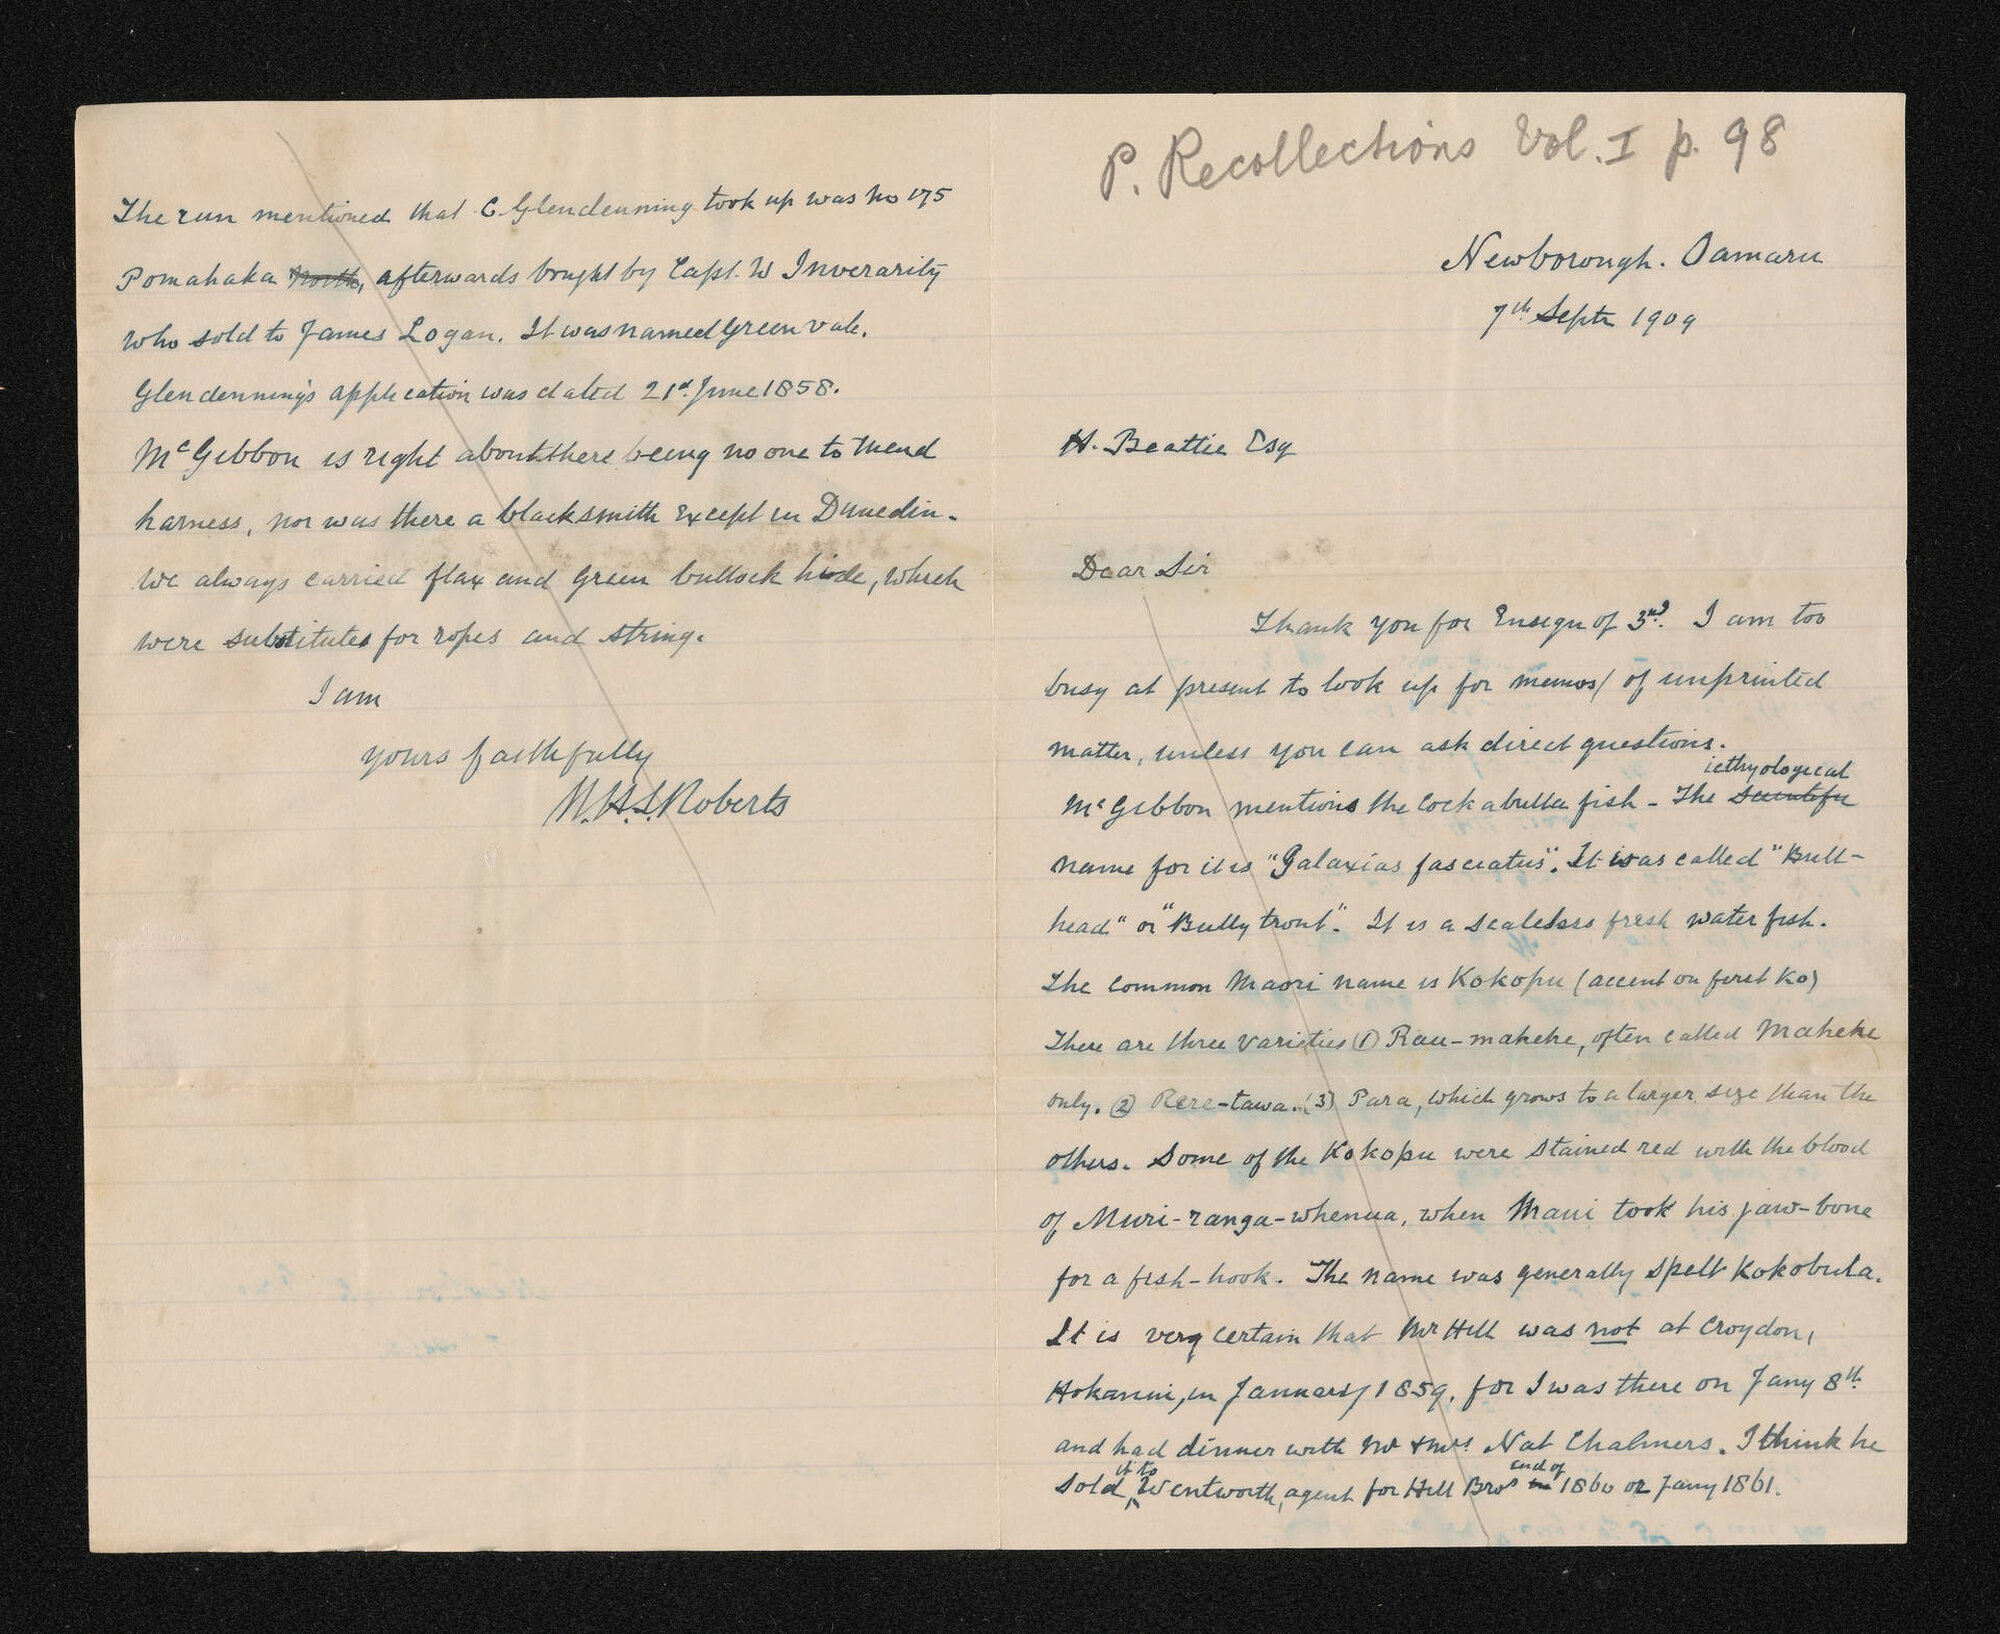 P. Recollections Vol. I p. 98
Newborough. Oamaru
7th Septr 1909
H. Beattie Esq
Dear Sir
Thank you for Ensign of 3rd. I am too
busy at present to look up for memos/ of unprinted
matter, unless you can ask direct questions.
McGibbon mentions the Cockabulla fish - The Scientific icthyological
name for it is "Galaxias fasciatus". It was called "Bull-
head" or "Bully trout". It is a scaleless fresh water fish.
The common Maori name is Kokopu (accent on first Ko)
There are three varieties (1) Rau-maheke, often called Maheke
only. (2) Rere-tawa. (3) Para, which grows to a larger size than the
others. Some of the Kokopu were stained red with the blood
of Muri-ranga-whenua, when Maui took his jaw-bone
for a fish-hook. The name was generally spelt Kokobula.
It is very certain that Mr Hill was not at Croydon,
Hokanui, in January 1859, for I was there on Jany 8th
and had dinner with Mr & Mrs Nat Chalmers. I think he
sold it to Wentworth, agent for Hill Bros in end of 1860 or Jany 1861.
The run mentioned that C. Glendenning took up was No 175
Pomahaka North, afterwards bought by Capt. W Inverarity
who sold to James Logan. It was named Greenvale.
Glendenning's application was dated 21st June 1858.
McGibbon is right about there being no one to mend
harness, nor was there a blacksmith except in Dunedin.
We always carried flax and green bullock hide, which
were substitutes for ropes and string.
I am
yours faithfully
W.H.S. Roberts